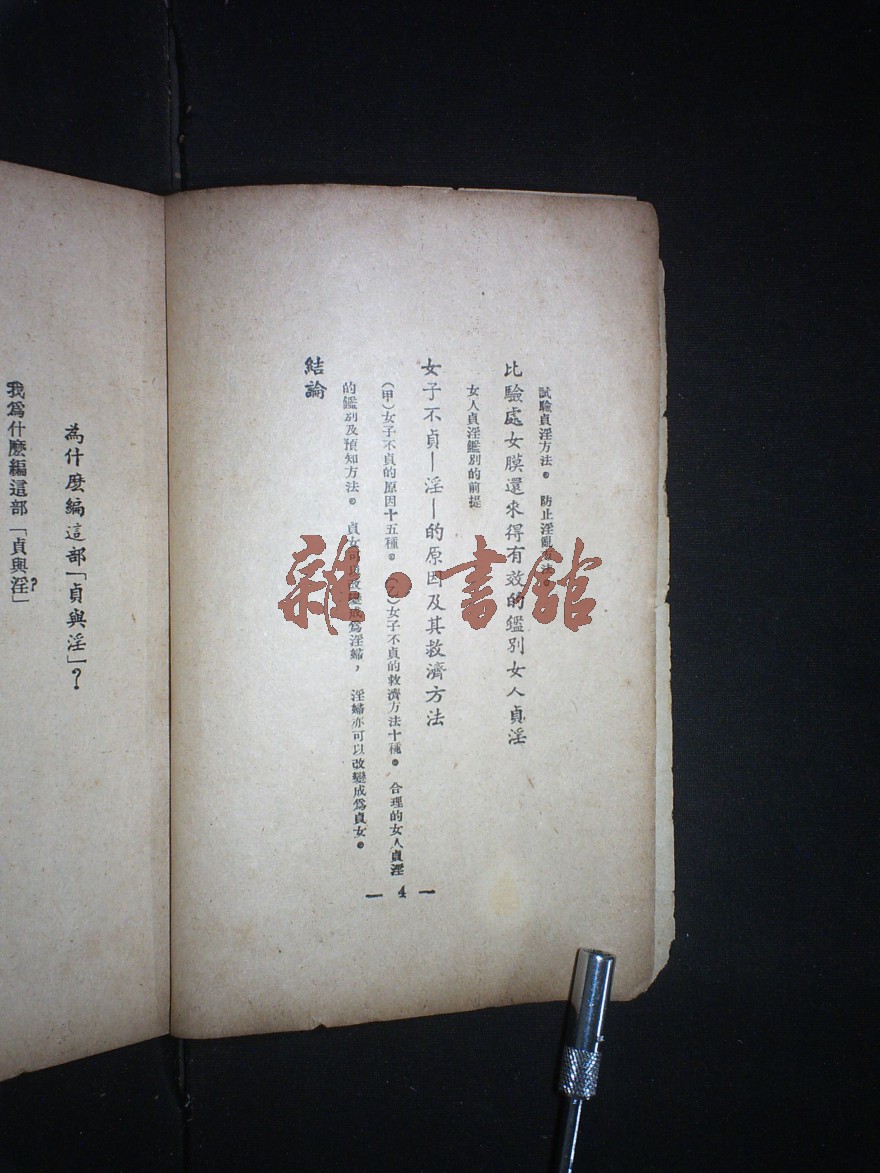 試驗貞淫方法。 防止淫亂方法
比驗處女膜還來得有效的鑑別女人貞淫
女人貞淫鑑別的前提
女子不貞—淫—的原因及其救濟方法
(甲)女子不貞的原因十五種。 (乙)女子不貞的救濟方法十種。 合理的女人貞淫
的鑑別及預知方法。 貞女可以改變成爲淫婦， 淫婦亦可以改變成爲貞女。
結論
— 4 —
為什麽編這部「貞與淫」？
我爲什麽編這部「貞與淫」？
雜·書館